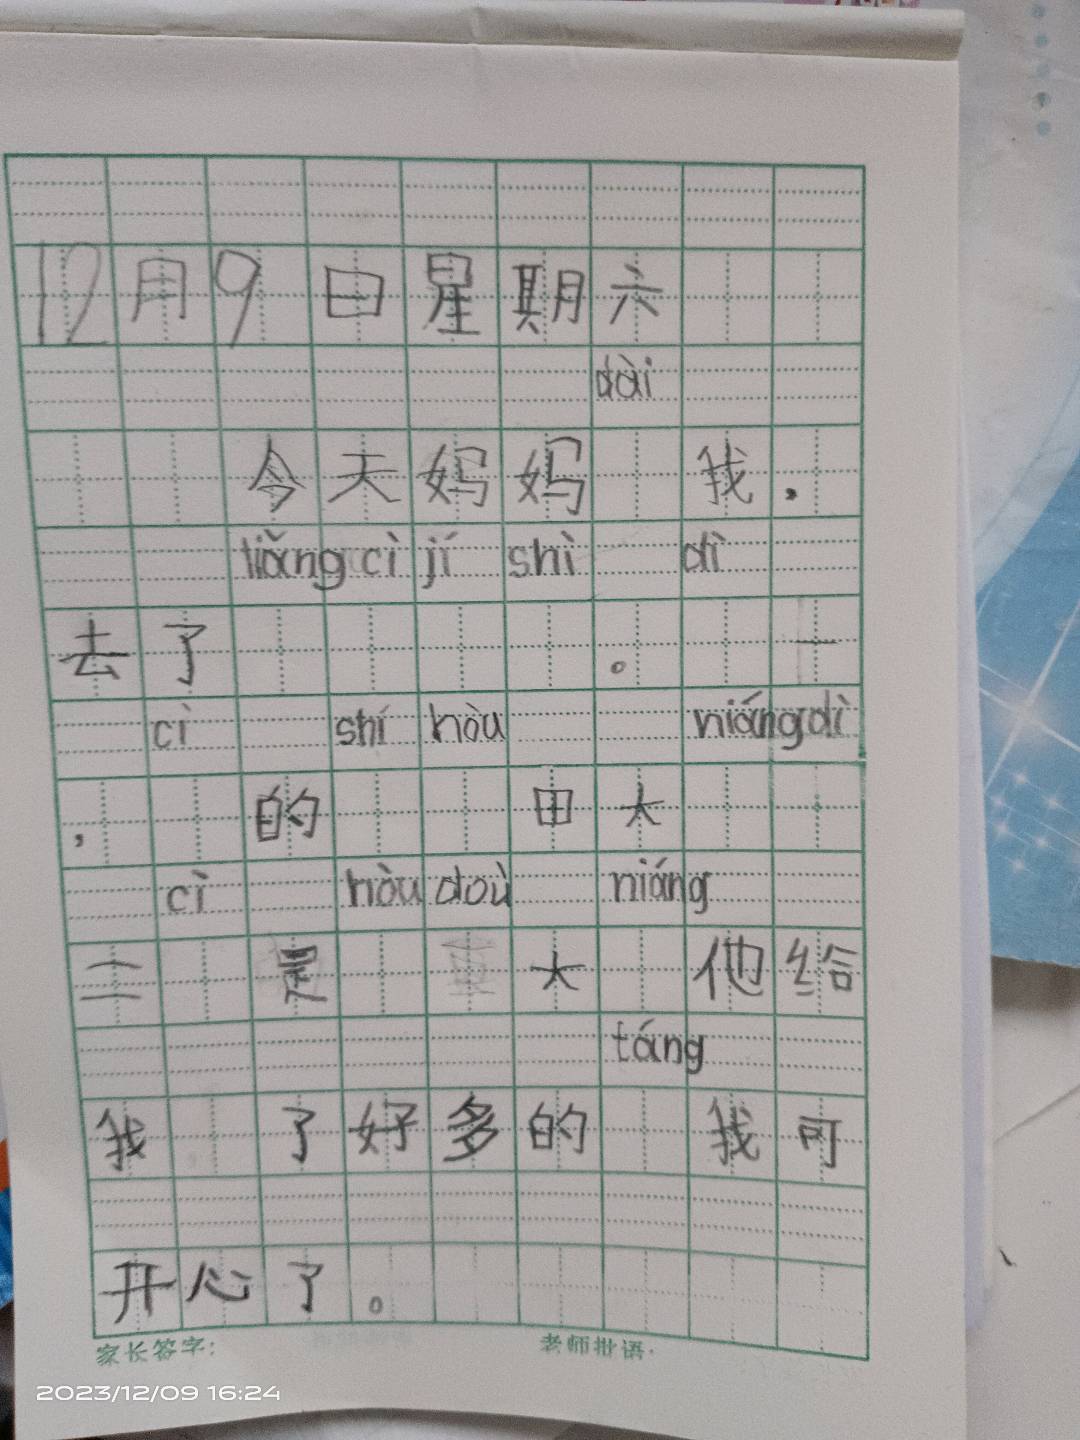 12月9日星期六
dài
今天妈妈 我，
liǎng cì jí shì dì
去了 。 一
cì shí hòu niáng dì
， 的 田大
cì hòu doù niáng
三 是 大 他给
táng
我 了好多的 我可
开心了。
家长签字： 老师批语：
2023/12/09 16:24